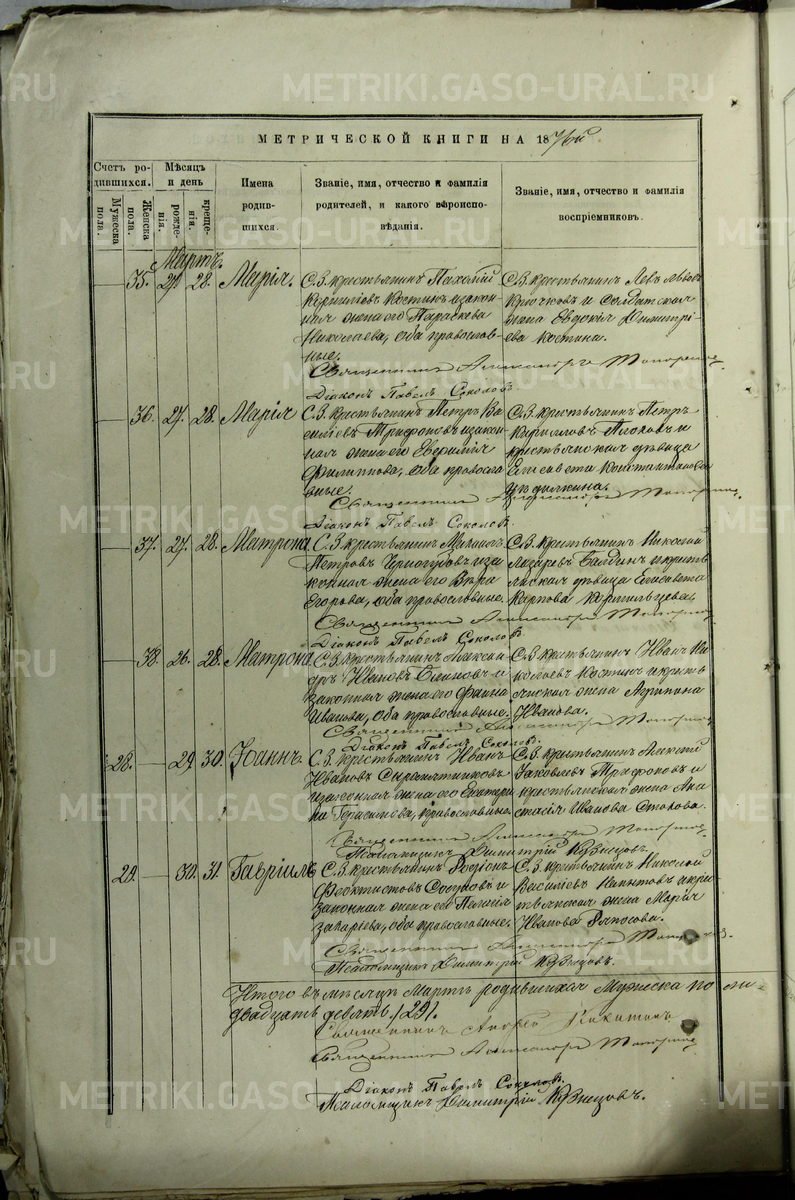 METRIKI.GASO-URAL.RU
МЕТРИЧЕСКОЙ КНИГИ НА 1876й
Счетъ ро-
дившихся.
Мѣсяцъ
и день
Мужеска
пола.
Женска
пола.
рожде-
нія.
креще-
нія.
Имена
родив-
шихся.
Званіе, имя, отчество и фамилія
родителей, и какого вѣроиспо-
вѣданія.
Званіе, имя, отчество и фамилія
воспріемниковъ.
Мартъ.
35. 27 28. Марія.
С. З. крестьянинъ Пахомій
Корниліевъ Костинъ и закон-
ная жена его Параскева
Николаева, оба православ-
ные.
С. З. крестьянинъ Левъ Львовъ
Крючковъ и солдатская
жена Евдокія Димитрі-
ева Костина.
Священникъ Александръ Топорковъ
Діаконъ Павелъ Соколовъ
36. 27. 28. Марія
С. З. крестьянинъ Петръ Ва-
силіевъ Трифоновъ и закон-
ная жена его Евфимія
Филиппова, оба православ-
ные.
С. З. крестьянинъ Петръ
Кирилловъ и
крестьянская дѣвица
Елисавета Константинова
Священникъ Александръ
Діаконъ Павелъ Соколовъ.
37. 27. 28. Матрона
С. З. крестьянинъ Михаилъ
Петровъ и за-
конная жена его Вѣра
Егорова, оба православные.
С. З. крестьянинъ Николай
Лазаревъ Балдинъ и кресть-
янская дѣвица Елисавета
Карпова Корнильцева.
Священникъ Александръ
Діаконъ Павелъ Соколовъ
38. 26. 28. Матрона
С. З. крестьянинъ Алексан-
дръ Ивановъ и
законная жена его Фаина
Иванова, оба православные.
С. З. крестьянинъ Иванъ Ни-
колаевъ Костинъ и кресть-
янская жена Агрипина
Иванова.
Священникъ Александръ
Діаконъ Павелъ Соколовъ
28. 29. 30. Іоаннъ.
С. З. крестьянинъ Иванъ
Ивановъ Сыромятниковъ
и законная жена его Екатери-
на Герасимова, православные.
С. З. крестьянинъ Алексѣй
Яковлевъ Трифоновъ и
крестьянская жена Ана-
стасія Иванова
Священникъ Александръ
Псаломщикъ Димитрій Кузнецовъ.
29. 30. 31. Гавріилъ
С. З. крестьянинъ Родіонъ
Феоктистовъ Сосуновъ и
законная жена его Пелагія
Захарьева, оба православные.
С. З. крестьянинъ Николай
Василіевъ и крес-
тьянская жена Марія
Иванова
Священникъ Александръ
Псаломщикъ Димитрій Кузнецовъ.
Итого въ мѣсяцѣ Мартѣ родившихся Мужеска пола
двадцать девять /29/.
Священникъ Андрей Никитинъ
Священникъ Александръ
Діаконъ Павелъ Соколовъ.
Псаломщикъ Димитрій Кузнецовъ.